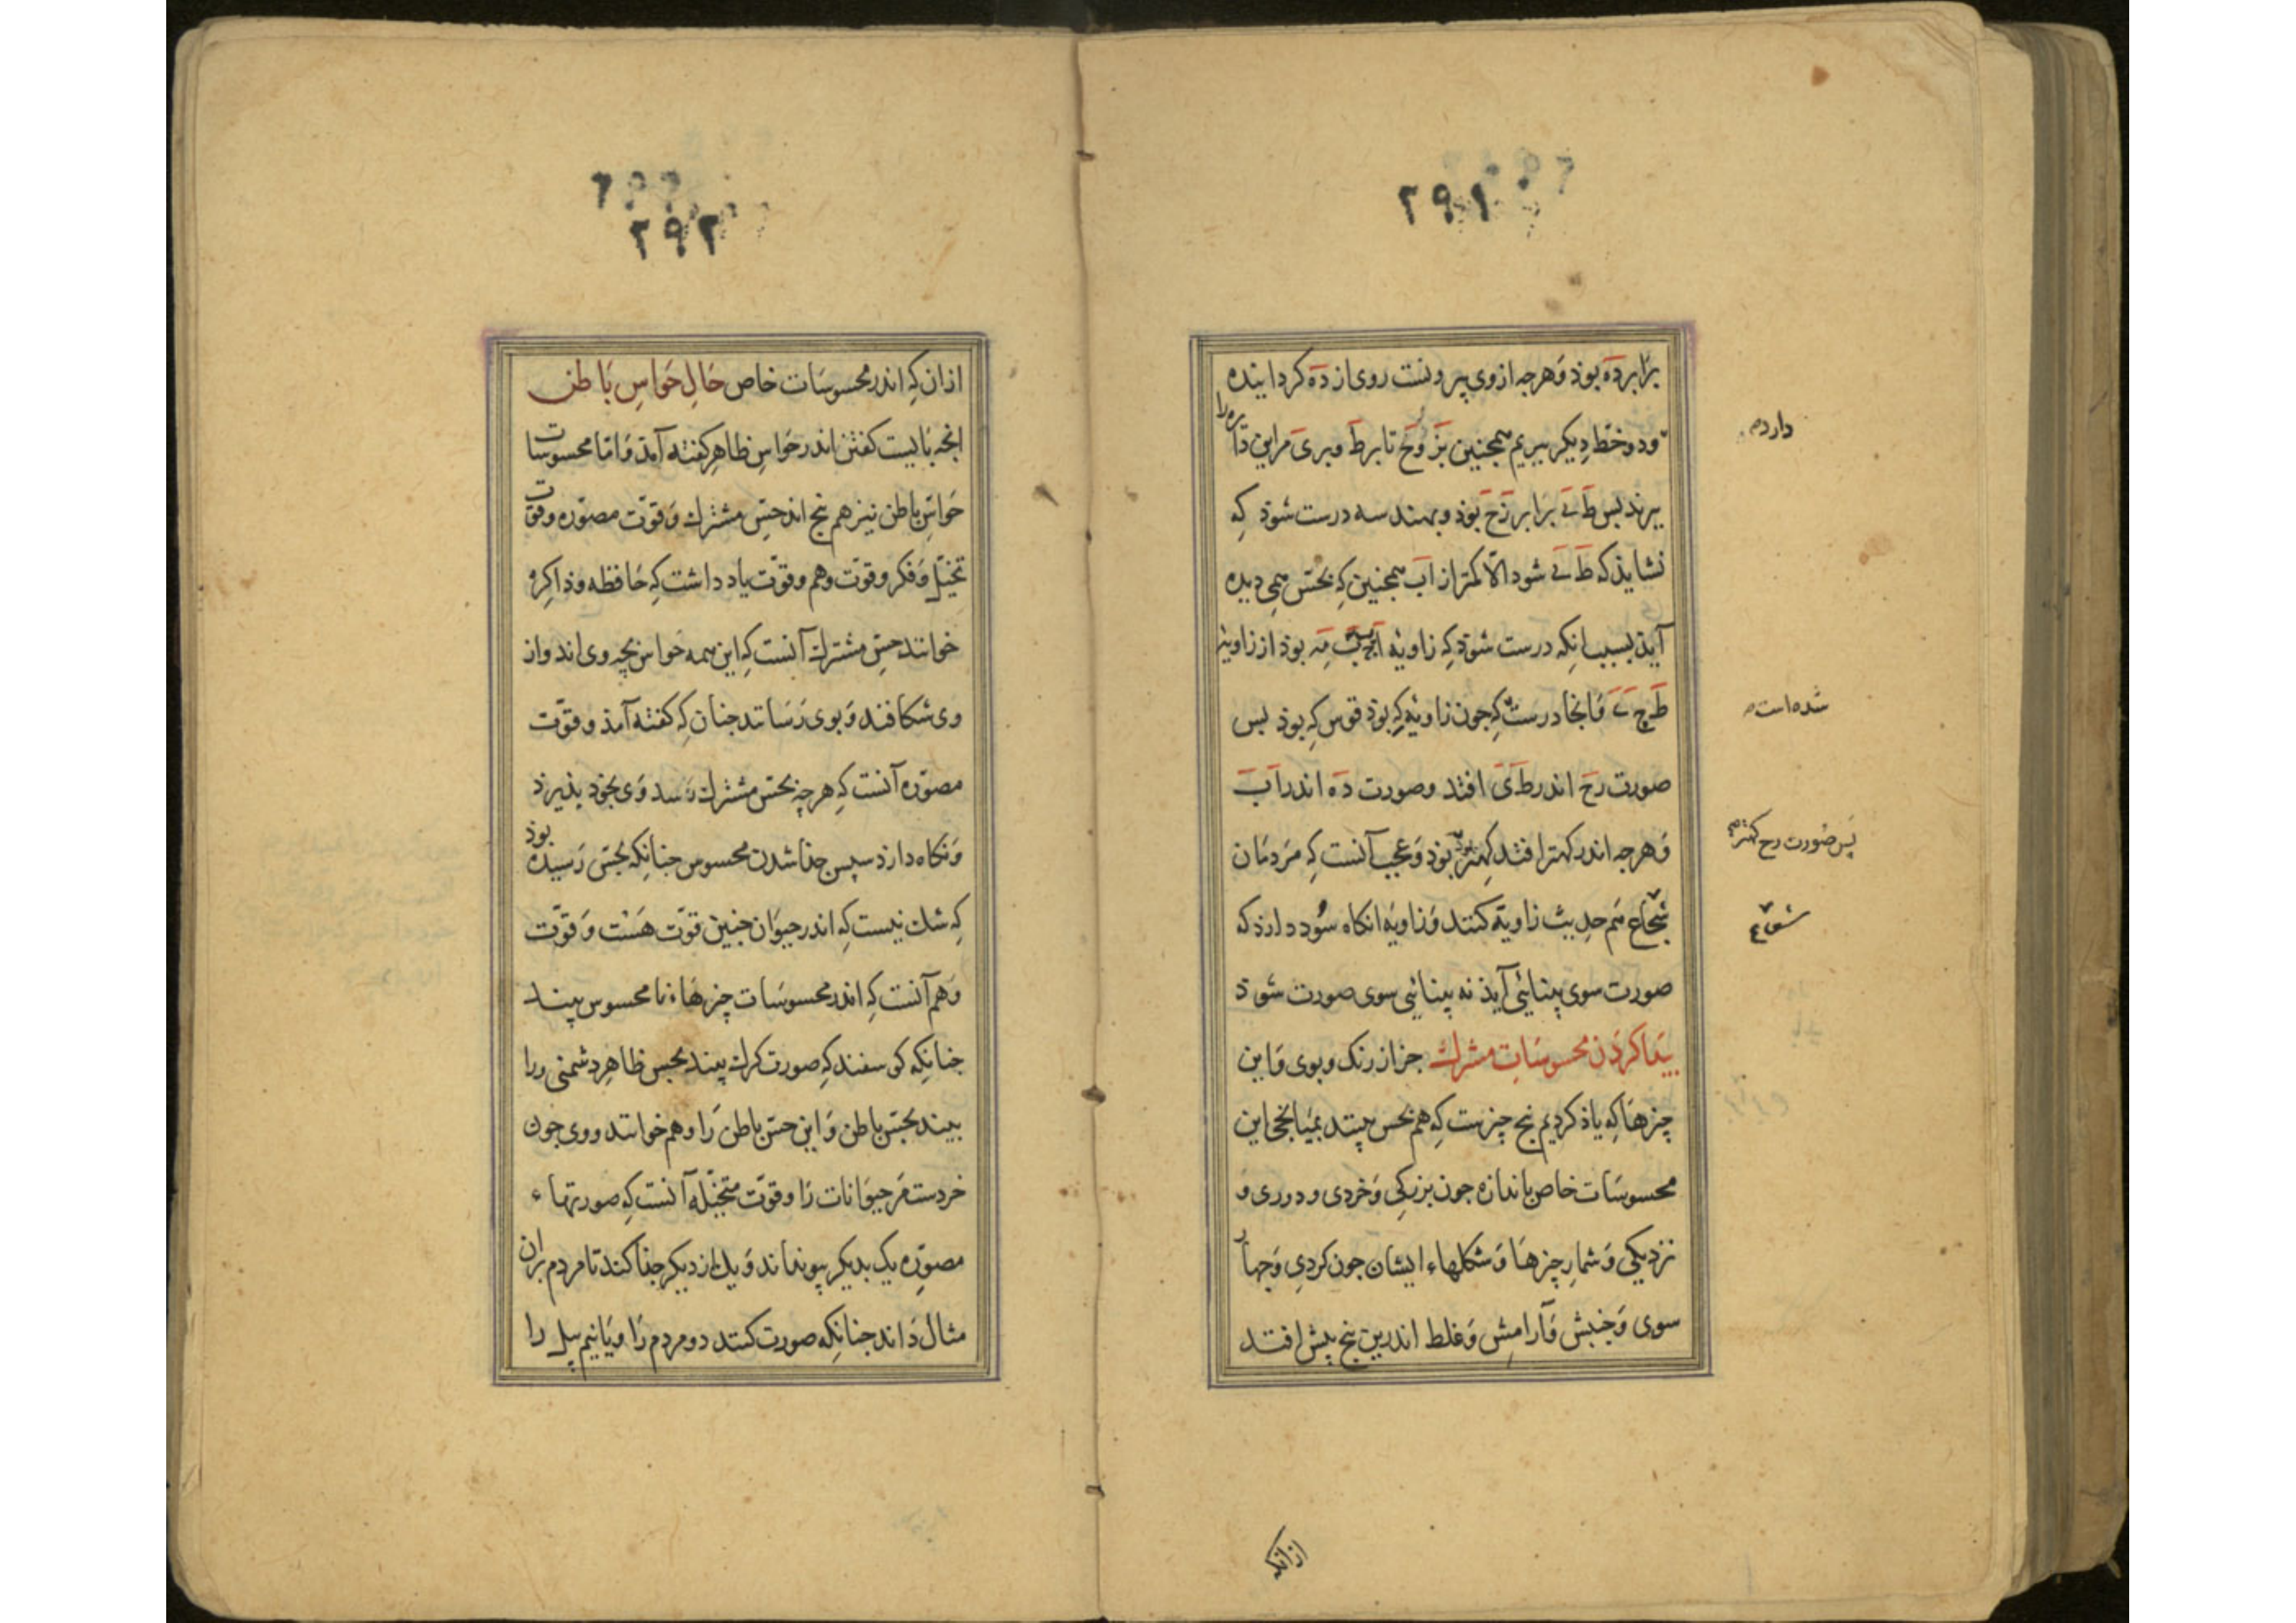 ۲۹۱
برابر ده بوذ و هرجه از وی بیرونست روی از ده کردانیده
ودو خط دیکر ببریم همجنین بز وح تا برط و بری مراین دایره را
ببرند بس ط ی برابر زح بوذ و بهندسه درست شوذ که
نشایذ که ط ی شود الّا کمتر از اب همجنین که بحس همی دیده
آیذ بسبب انکه درست شوذ که زاویهٔ بوذ از زاویهٔ
وانجا درست که جون زاویه که بوذ قوس که بوذ بس
صورت رح اندر ط ی افتد وصورت ده اندر اب
و هرجه اندر کهتر افتد کهتر بوذ و عجب آنست که مردمان
شجاع هم حدیث زاویه کنند و زاویه انکاه سود دارذ که
صورت سوی بینائی آیذ نه بینائی سوی صورت شوذ
پیدا کردن محسوسات مشترک جز از رنک و بوی و این
چیزها که یاذ کردیم پنج چیزست که هم بحس بینند بمیانجی این
محسوسات خاص باندازه جون بزرکی و خردی و دوری و
نزدیکی و شمار چیزها و شکلهاء ایشان جون کردی و چهار
سوی و جنبش و آرامش و غلط اندرین پنج بیش افتد
دارد
شده است
پس صورت رح کهتر
شعاع
از انک
۲۹۲
از ان که اندر محسوسات خاص حال حواس باطن
انجه بایست کفتن اندر حواس ظاهر کفته آمذ و اما محسوسات
حواس باطن نیز هم پنج اند حس مشترک و قوت مصوره و قوت
تخیل و فکر و قوت وهم و قوت یاد داشت که حافظه و ذاکره
خوانند حس مشترک آنست که این همه حواس بچه وی اند و از
وی شکافند و بوی رسانند جنان که کفته آمذ و قوت
مصوره آنست که هرچه بحس مشترک رسد وی بخوذ بذیرذ
و نکاه دارذ سپس جذا شدن محسوس جنانکه بحس رسیده بوذ
که شک نیست که اندر حیوان جنین قوت هست و قوت
وهم آنست که اندر محسوسات چیزهاء نامحسوس بیند
جنانکه کوسفند که صورت کرک بیند بحس ظاهر دشمنی ورا
ببیند بحس باطن و این حس باطن را وهم خوانند و وی جون
خردست مر حیوانات را و قوت متخیله آنست که صورتهاء
مصوره یک بدیکر پیونداند و یک از دیکر جذا کند تا مردم بران
مثال داند جنانکه صورت کند دو مردم را و یا نیم پیل را